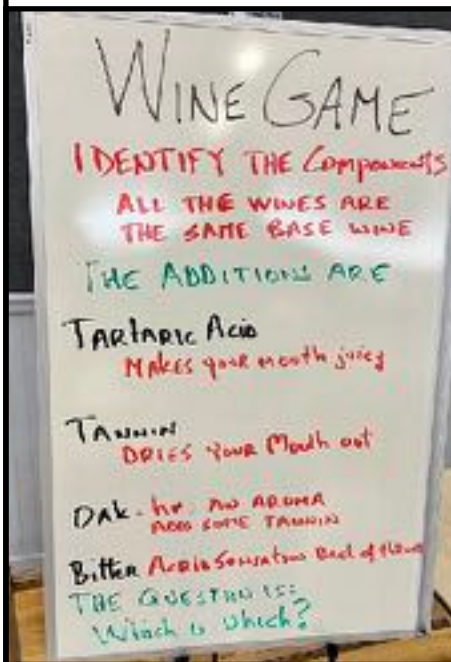 WINE GAME
IDENTIFY THE COMPONENTS
ALL THE WINES ARE
THE SAME BASE WINE
THE ADDITIONS ARE
TARTARIC ACID
MAKES your mouth juicy
TANNIN
DRIES YOUR Mouth out
OAK - AN AROMA
ADDS SOME TANNIN
Bitter Sensation Back of
THE QUESTION IS:
Which is which?